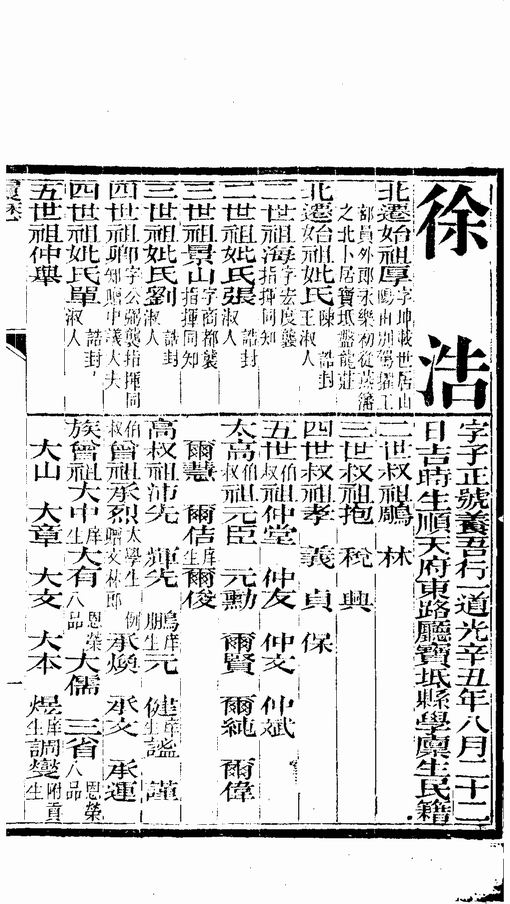 徐浩
字子正號養吾行一道光辛丑年八月二十二
日吉時生順天府東路廳寶坻縣學廩生民籍
北遷始祖厚字坤載世居山
陽由荆駕擢工
部員外郎永樂初從燕藩
之北卜居寶坻盤龍莊
北遷始祖妣氏陳 誥封
王淑人
二世祖海字去度襲
指揮同知
二世祖妣氏張誥封
淑人
三世祖景山字商都襲
指揮同知
三世祖妣氏劉誥封
淑人
四世祖卿字公弼襲指揮同
知贈中議大夫
四世祖妣氏單誥封
淑人
五世祖仲舉
二世叔祖鵬 林
三世叔祖抱 稅 興
四世叔祖孝 義 貞 保
五世伯叔祖仲堂 仲友 仲文 仲斌
太高伯叔祖元臣 元勳 爾賢 爾純 爾偉
爾慧 爾佶庠生爾俊
高叔祖沛先 輝先 朋庠生元 健庠生謐 謹
伯叔曾祖承烈太學生例贈文林郎承煥 承文 承運
族曾祖大中庠生大有恩榮八品大儒 三省恩榮八品
大山 大章 大文 大本 煜庠生調燮附貢生
履歷